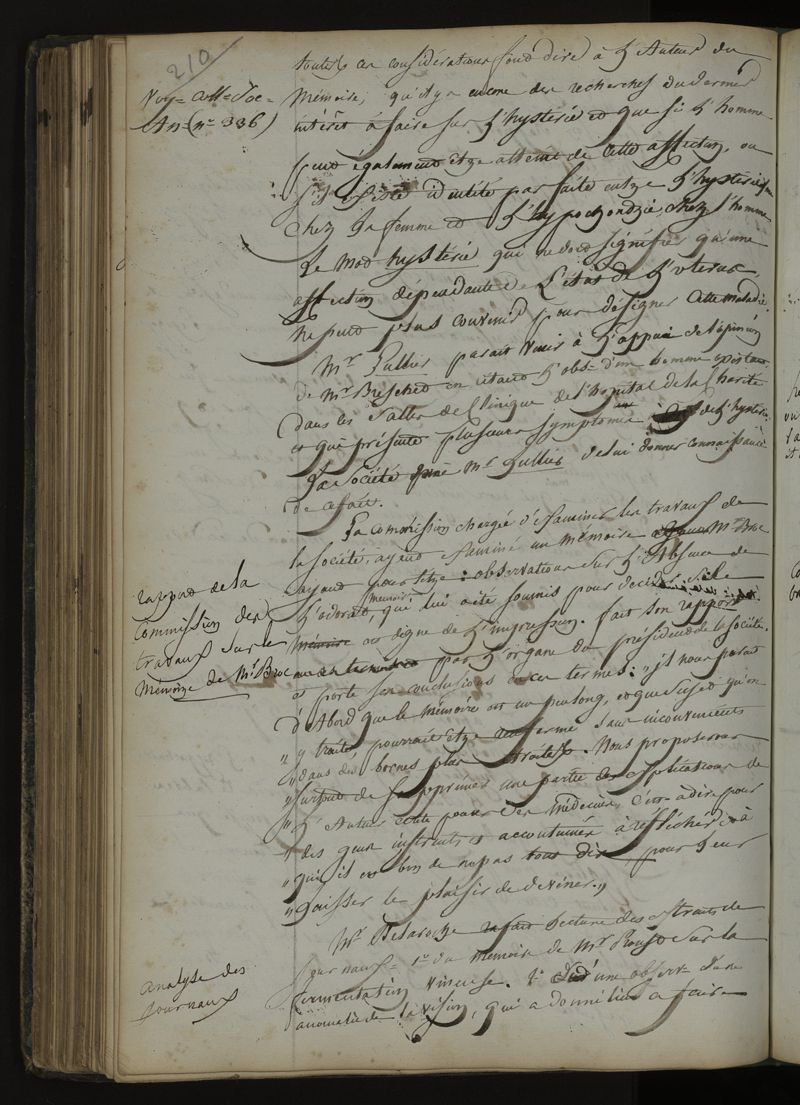 210
Voy= Coll= Soc=
An= (n° 336)
toutes ces considérations font dire à l'Auteur du
Mémoire, qu'il y a encore des recherches du dernier
intérêt à faire sur l'hysterie et que si l'homme
peut également etre atteint de cette affection, ou
s'il existe identité parfaite entre l'hysterie
chez la femme et l'hypochondrie chez l'homme
Le mot hystérie qui ne doit signifier qu'une
affection dépendante de l'état de l'uterus,
ne peut plus convenir pour désigner cette maladie.
Mr. Lullier parait venir à l'appui de l'opinion
de Mr Breschet en citant l'obs= d'un homme
dans les Salles de Clinique de l'hopital de la Charité
et qui présente plusieurs symptomes de l'hysterie
La Société prie Mr Lullier de lui donner connaissance
de ce fait.
rapport de la
Commission des
travaux sur le
Memoire de Mr Broc
La commission chargée d'examiner les travaux de
la société, ayant examiné un mémoire Mr Broc
ayant pour titre: observations sur l'Absence de
l'odorat, memoire qui lui a été soumis pour decider s'il
mémoire est digne de l'impression. fait son rapport
par l'organe du président de la société.
et porte ses conclusions en ces termes: "il nous parait
d'Abord que le mémoire est un peu long, et que le sujet qu'on
"y traite, pourrait etre renfermé sans inconvenients
"dans des bornes plus étroites. Nous proposerons
"surtout de supprimer une partie des explications de
"l'Auteur écrit pour des Médecins, c'est à dire pour
"des gens instruits et accoutumés à réfléchir et à
"qui il est bon de ne pas tout dire, pour leur
"laisser le plaisir de deviner."
analyse des
Journaux
Mr Delaroche fait lecture des extraits de
Journaux= 1° du Memoire de Mr Proust sur la
fermentation vineuse. 2° d'une observ= d'une
anomalie de la vision, qui a donné lieu a faire